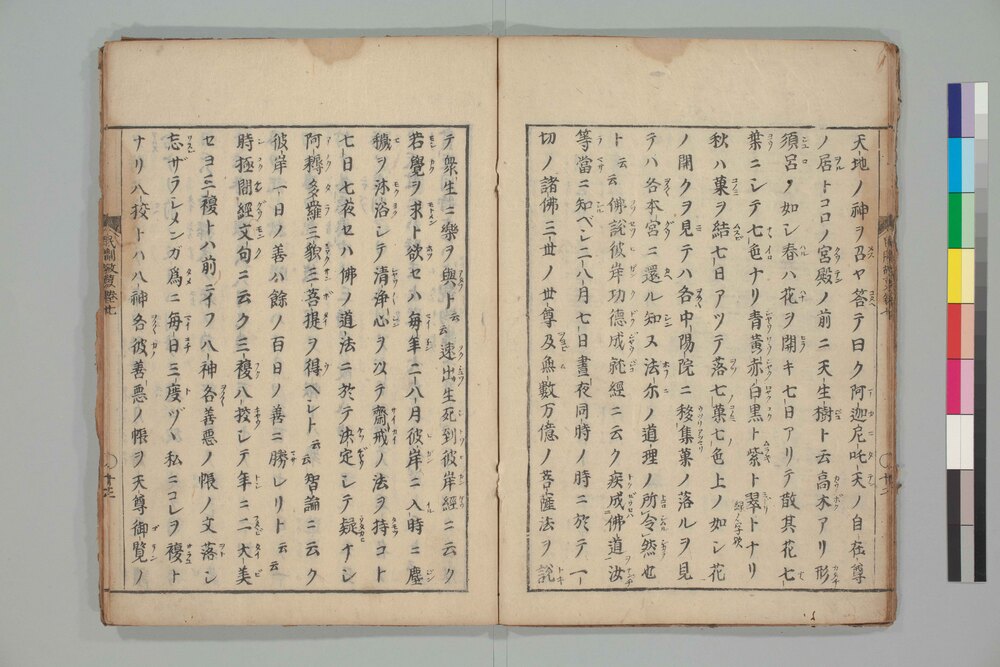 天地ノ神ヲ召ヤ答テ曰ク阿迦尼吒天ノ自在尊
ノ居トコロノ宮殿ノ前ニ天生樹ト云高木アリ形
須呂ノ如シ春ハ花ヲ開キ七日アリテ散其花七
葉ニシテ七色ナリ青黄赤白黒ト紫ト翠トナリ
秋ハ菓ヲ結七日アツテ落七菓七色上ノ如シ花
ノ開クヲ見テハ各中陽院ニ移集菓ノ落ルヲ見
テハ各本宮ニ還ル知又法尓ノ道理ノ所令然也
ト云云佛說彼岸功德成就經ニ云ク疾成佛道汝
等當ニ知ベシ二八月七日晝夜同時ノ時ニ於テ一
切ノ諸佛三世ノ世尊及無數万億ノ菩薩法ヲ說
テ衆生ニ樂ヲ與ト云云速出生死到彼岸經ニ云ク
若覺ヲ求ト欲セハ每年二八月彼岸ニ入時ニ塵
穢ヲ沐浴シテ清浄心ヲ以テ齋戒ノ法ヲ持コト
七日七夜セハ佛ノ道法ニ於テ決定シテ疑ナシ
阿耨多羅三藐三菩提ヲ得ヘシト云云智論ニ云ク
彼岸一日ノ善ハ餘ノ百日ノ善ニ勝レリト云云
時極閻經文句ニ云ク三複八挍シテ年ニ二大美
セヨ三複トハ前ニイフ八神各善悪ノ帳ノ文落シ
忘ザラシメンガ爲ニ每日三度ヅヽ私ニコレヲ複ト
ナリ八挍トハ八神各彼善悪ノ帳ヲ天尊御覽ノ